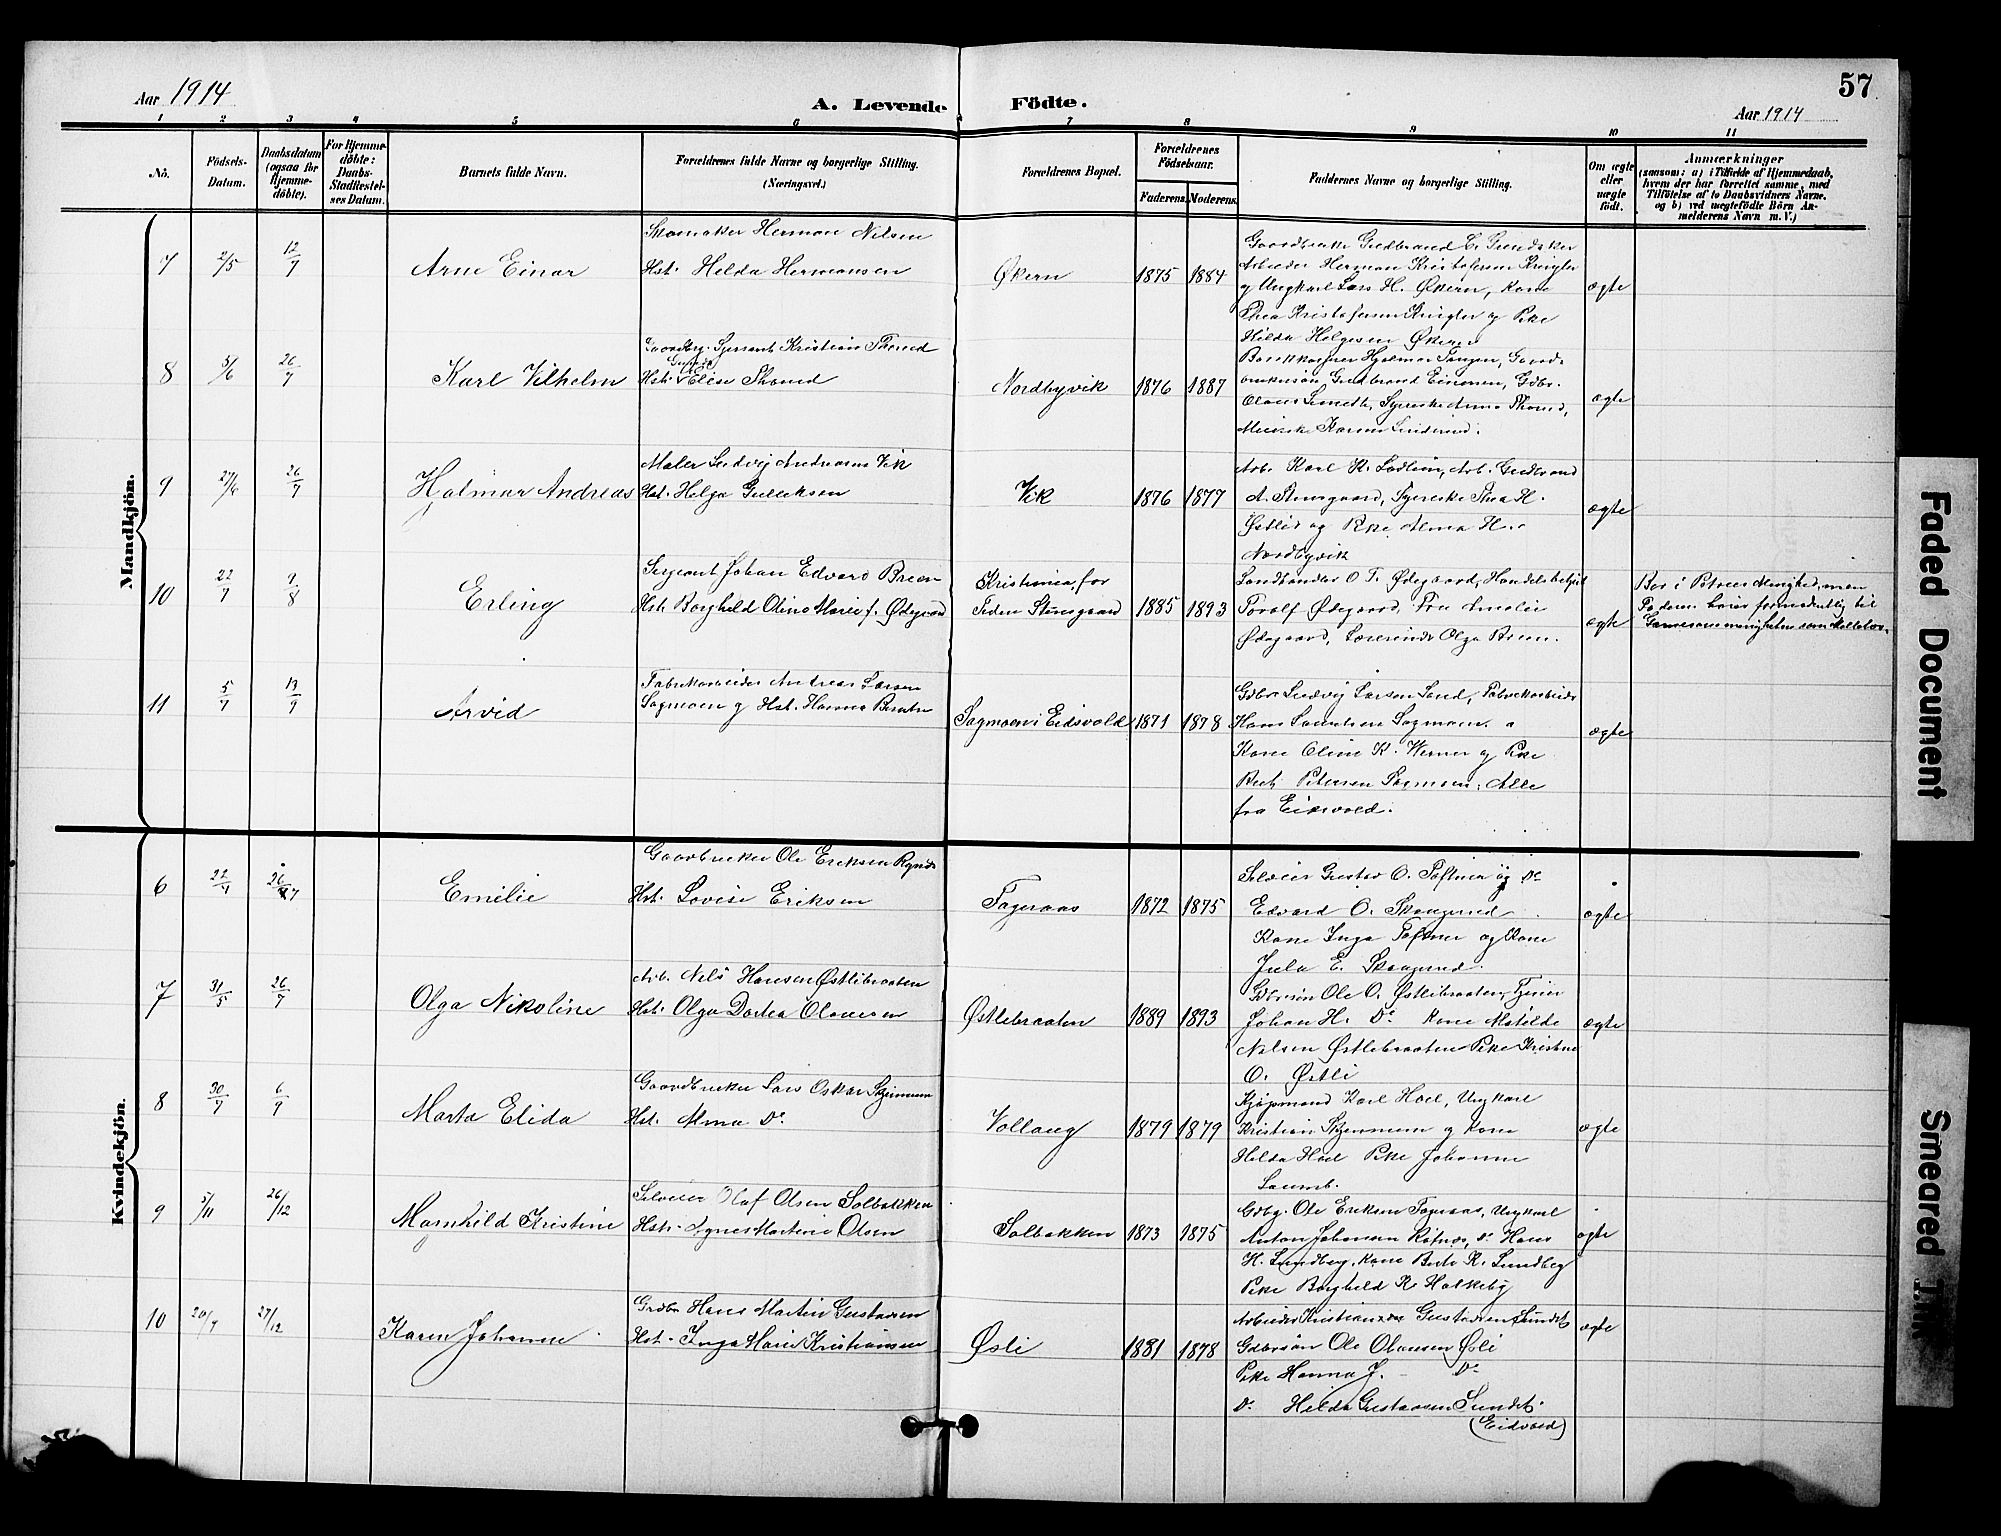 57
Aar 1914
A. Levende Födte.
Aar 1914
1 2 3 4 5 6 7 8 9 10 11
No.
Födsels-Datum.
Daabsdatum (ogsaa for Hjemmedöbte).
For Hjemmedöbte: Daabs-Stadfæstelses Datum.
Barnets fulde Navn.
Forældrenes fulde Navne og borgerlige Stilling.
(Næringsvei.)
Forældrenes Bopæl.
Forældrenes Födselsaar.
Faderens. Moderens.
Faddernes Navne og borgerlige Stilling.
Om ægte eller uægte födt.
Anmærkninger
(saasom: a) i Tilfælde af Hjemmedaab,
hvem der har forrettet samme, med
Tilföielse af to Daabsvidners Navne.
og b) ved uægtefödte Börn An-
melderens Navn m. V.)
Mandkjön.
7 2/5 12/7 Arne Einar
Skomaker Herman Nilsen
Hst. Helda Hermansen
Økern 1875 1884
Gaardbruker Gudbrand
Arbeider Herman Kristofersen Kringler
og Ungkarl Lars H. Økern, Kone
Thea Kristofersen Kringler og Pike
Hilda Helgesen Økern
ægte
8 5/6 26/7 Karl Vilhelm
Kristian Thorud
Hst. Elise Thorud
Nordbyvik 1876 1887
Hjalmar Tangen, Gaard-
Gudbrand Einunen, Gdbr.
Syerske Anna Thorud,
Karen
ægte
9 27/6 26/7 Hjalmar Andreas
Maler Ludvig Andreasen Vik
Hst. Helga Gulliksen
Vik 1876 1877
Arb. Karl K. Arb. Gudbrand
A. Stensgaard, Syerske Thea H.
Østlid og Pike Alma H.
Nordbyvik
ægte
10 22/7 9/8 Erling
Sergeant Johan Edvard Breen
Hst. Borghild Oline Marie f. Ødegaard
Kristiania, før
Stensgaard
1885 1893
Landhandler O. T. Ødegaard, Handelsbetjent
Torolf Ødegaard, Fru Amalie
Ødegaard, Lærerinde Olga Breen.
ægte
Bor i Petrus Menighed, men
Faderen hører formodentlig til
Garnisonsmenigheten som
11 5/7 13/9 Arvid
Fabrikarbeider Andreas Larsen
Sagmoen og Hst. Hanna
Sagmoen i Eidsvold 1871 1878
Gdbr Ludvig Larsen Sand, Fabrikarbeider
Hans Sagmoen
Kone Oline K. Werner og Pike
Petersen Sagmoen, Alle
fra Eidsvold.
ægte
Kvindekjön.
6 22/4 26/7 Emilie
Gaardbruker Ole Eriksen
Hst. Lovise Eriksen
Fageraas 1872 1875
Selveier Gustav O. Toftner og Do
Edvard O. Skaugerud
Kone Inga Toftner og Kone
Jula E. Skaugerud.
ægte
7 31/5 26/7 Olga Nikoline
Arb. Nels Hansen Østlibraaten
Hst. Olga Dortea Olausen
Østlibraaten 1889 1893
Gdbrsön Ole O. Østlibraaten, Tjener
Johan H. Do Kone Matilde
Nilsen Østlibraaten Pike Kristine
O. Østli
ægte
8 30/7 6/9 Marta Elida
Gaardbruker Lars Oskar Skjennum
Hst. Alma Do
Vollaug 1879 1879
Kjøpmand Karl Hoel, Ungkarl
Kristian Skjennum og Kone
Hilda Hoel Pike Johanne
ægte
9 5/11 26/12 Magnhild Kristine
Selveier Olaf Olsen Solbakken
Hst. Agnes Martine Olsen
Solbakken 1873 1875
Gdbr. Ole Eriksen Fageraas, Ungkarl
Anton Johansen Do Hans
H. Lundberg, Kone Berte K. Lundberg
Pike Borghild K. Holkeby
ægte
10 20/9 27/12 Karen Johanne
Grdbr Hans Martin Gustavsen
Hst. Inga Marie Kristiansen
Østli 1881 1878
Arbeider Kristian Gustavsen Sundet
Gdbrsön Ole Olausen Østli
Pike Hanna J. – Do
Do Hilda Gustavsen Sundet.
(Eidsvold)
ægte
Faded Document
Smeared Ink